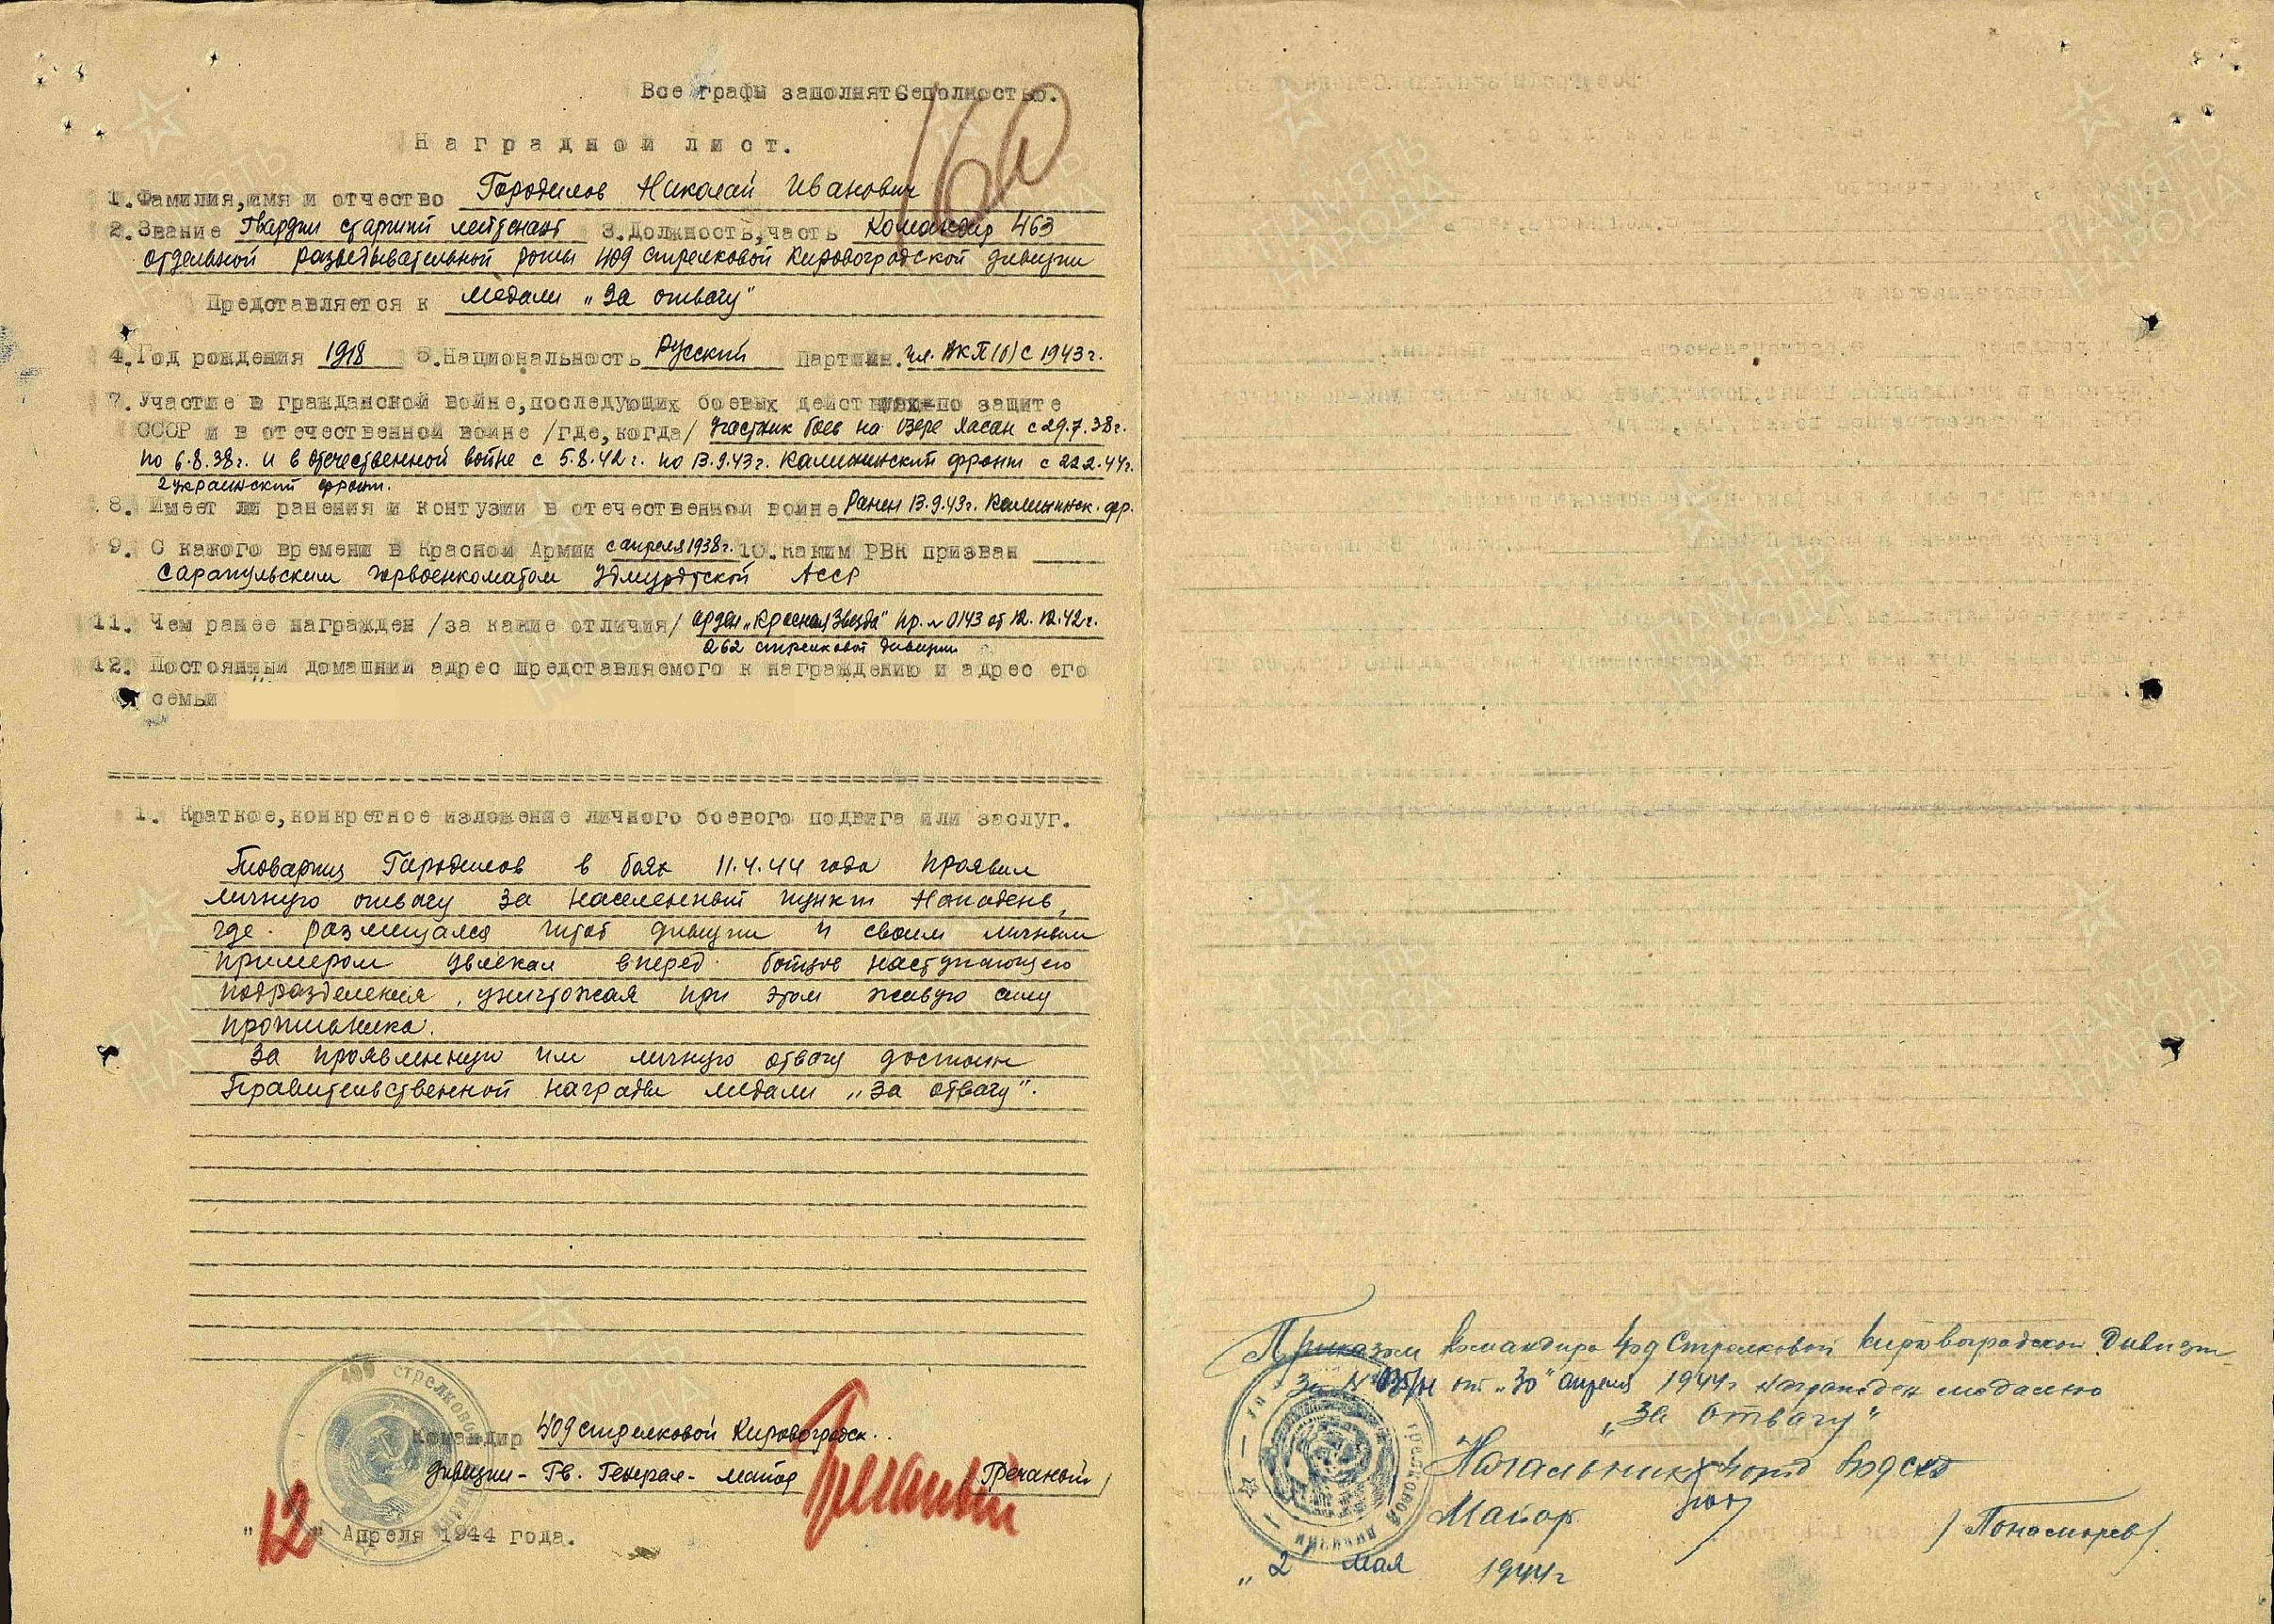 Все графы заполнять полностью.
160
Наградной лист.
1. Фамилия, имя и отчество Городилов Николай Иванович
2. Звание Гвардии старший лейтенант 3. Должность, часть Командир 463
отдельной разведывательной роты 409 стрелковой Кировоградской дивизии
Представляется к медали „За отвагу"
4. Год рождения 1918 5. Национальность Русский Партийн. чл. ВКП(б) с 1943 г.
7. Участие в гражданской войне, последующих боевых действиях по защите
СССР и в отечественной войне /где, когда/ участник боев на озере Хасан с 29.7.38 г.
по 6.8.38 г. и в отечественной войне с 5.8.42 г. по 13.9.43 г. Калининский фронт с 22.2.44 г.
2 украинский фронт.
8. Имеет ли ранения и контузии в отечественной войне Ранен 13.9.43 г. Калининск. фр.
9. С какого времени в Красной Армии с апреля 1938 г. 10. Каким РВК призван
Сарапульским горвоенкоматом Удмуртской АССР
11. Чем ранее награжден /за какие отличия/ орден „Красная Звезда" пр. № 0143 от 12.12.42 г.
262 стрелковой дивизии
12. Постоянный домашний адрес представляемого к награждению и адрес его
семьи
1. Краткое, конкретное изложение личного боевого подвига или заслуг.
Товарищ Городилов в боях 11.4.44 года проявил
личную отвагу за населенный пункт Нападень,
где размещался штаб дивизии и своим личным
примером увлекал вперед бойцов наступающего
подразделения, уничтожая при этом живую силу
противника.
За проявленную им личную отвагу достоин
Правительственной награды медали „За отвагу".
409 стрелковой
Командир 409 стрелковой Кировоградск.
дивизии - Гв. Генерал-майор Гречаный /Гречаный/
"12" Апреля 1944 года.
Приказом Командира 409 Стрелковой Кировоградской Дивизии
За № 035/н от „30" апреля 1944 г награжден медалью
„За отвагу"
Начальник 409 СКД
Майор /Пономарев/
„2 мая 1944 г
ПАМЯТЬ НАРОДА